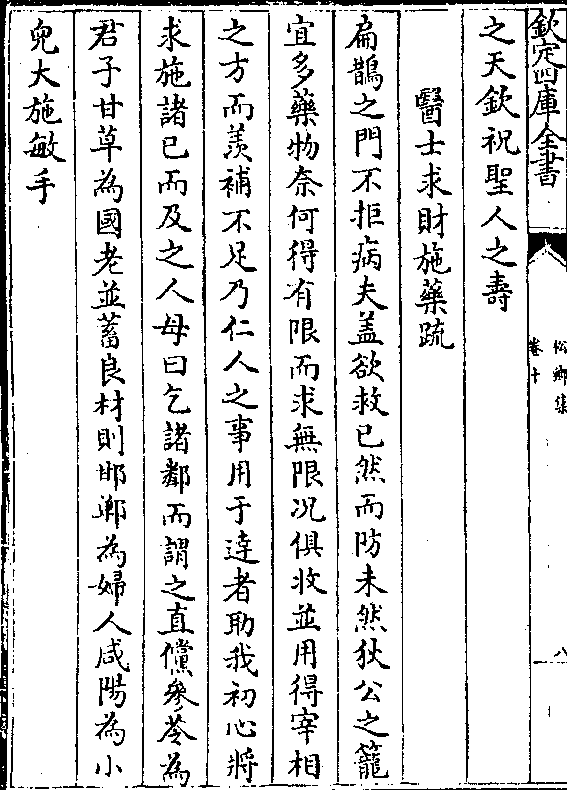 欽定四庫全書
松鄉集
卷十
八
之天欽祝聖人之壽
醫士求財施藥疏
扁鵲之門不拒病夫盖欲救已然而防未然狄公之籠
宜多藥物奈何得有限而求無限况俱收並用得宰相
之方而羨補不足乃仁人之事用于逹者助我初心將
求施諸已而及之人毋曰乞諸鄰而謂之直儻參苓為
君子甘草為國老並蓄良材則邯鄲為婦人咸陽為小
兒大施敏手